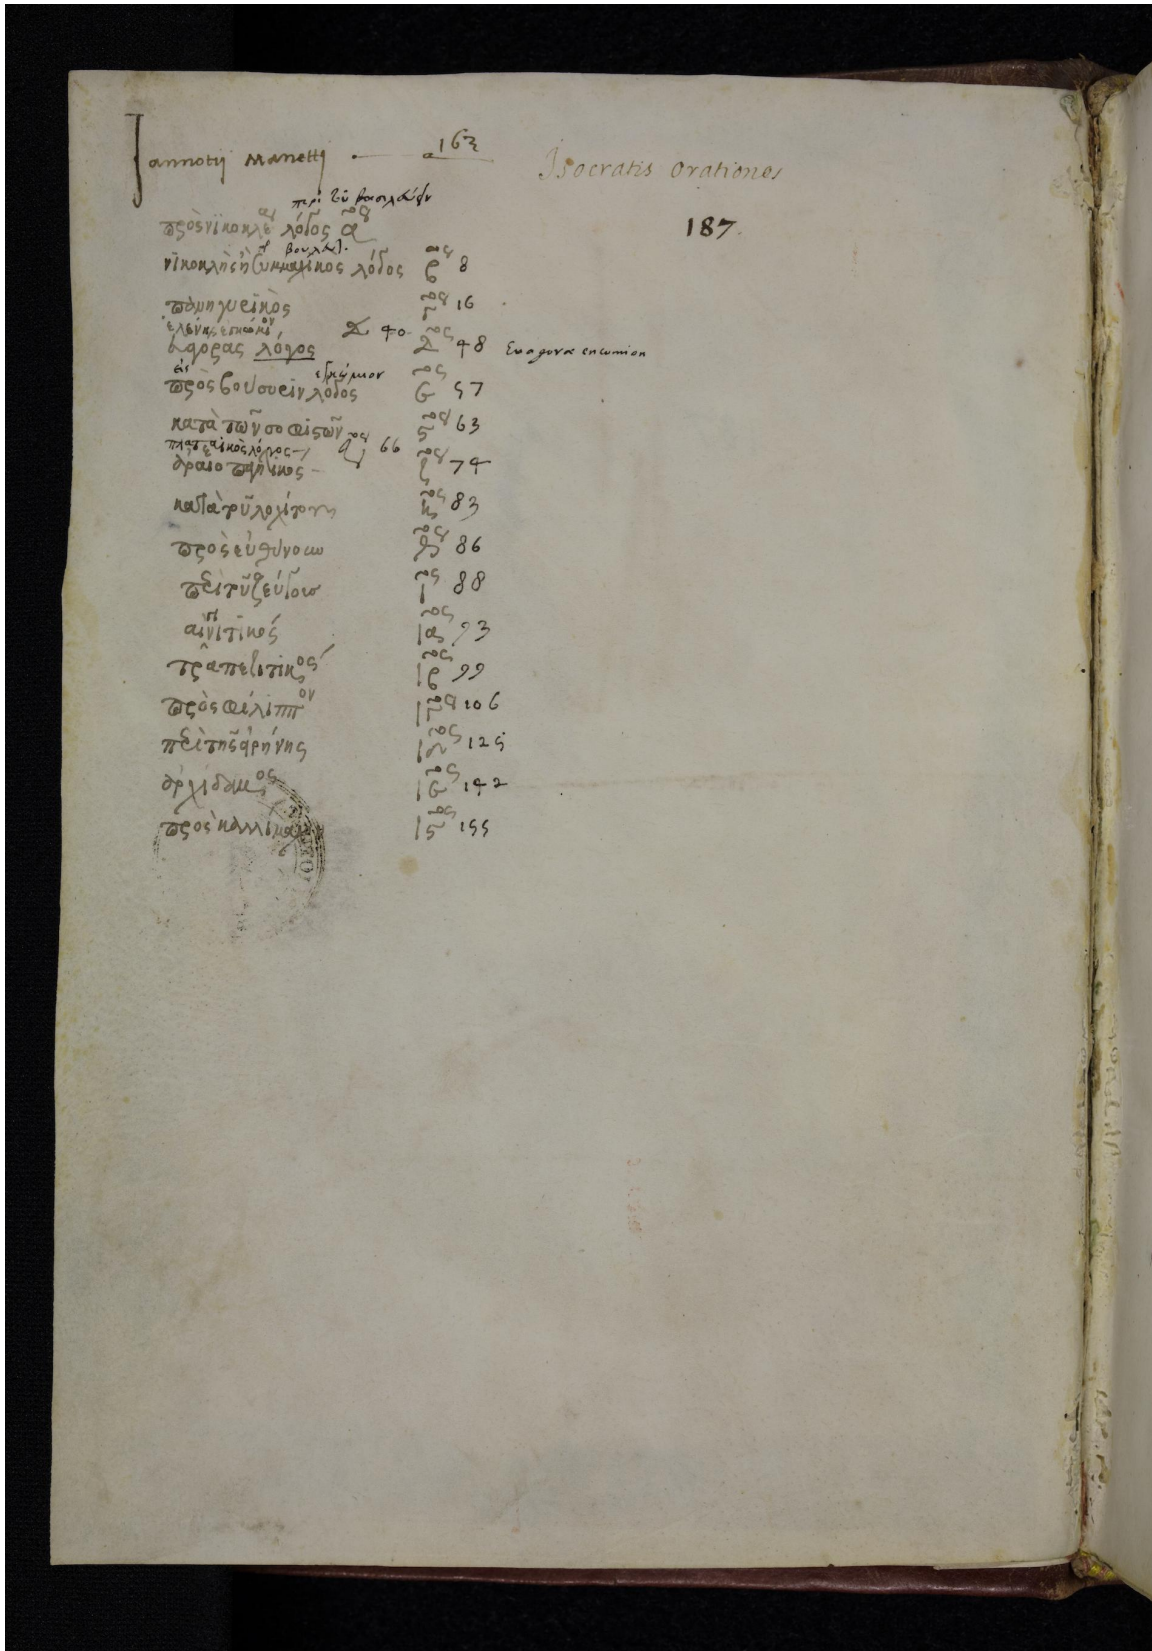 Jannotij Manettj 163
Isocratis orationes
187
περὶ τοῦ βασιλεύειν
πρὸς νικοκλέα λόγος α
νικοκλῆς ἢ συμμαχικὸς λόγος β 8
πανηγυρικὸς γ 16
ἑλένης ἐγκώμιον 40
λόγος 48 Euagorae encomion
ἐγκώμιον
πρὸς βούσυριν λόγος ε 57
κατὰ τῶν σοφιστῶν ς 63
πλαταϊκὸς λόγος 66
ἀραιοπαγητικος ζ 74
κατὰ τοῦ λοχίτου η 83
πρὸς εὐθύνουν θ 86
περὶ τοῦ ζεύγους ι 88
αἰγινιτικός ια 93
τραπεζιτικός ιβ 99
πρὸς φίλιππον ιγ 106
περὶ τῆς εἰρήνης ιδ 125
ἀρχίδαμος ιε 142
πρὸς καλλίμαχον ις 155